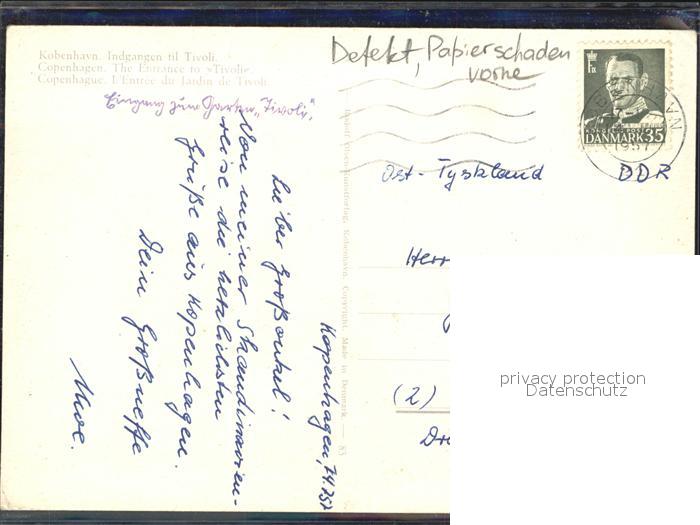 København. Indgangen til Tivoli.
Copenhagen. The Entrance to »Tivoli«.
Copenhague. L'Entrée du Jardin de Tivoli.
Eingang zum Garten „Tivoli“.
Defekt, Papierschaden
vorne
DANMARK 35
1957
Ost-Tyskland DDR
Herr
(2)
Dre
Kopenhagen,
Lieber Großonkel!
Von meiner Skandinavien-
reise die herzlichsten
Grüße aus Kopenhagen.
Dein Großneffe
Uwe.
København. Copyright. Made in Denmark. — 83
privacy protection
Datenschutz